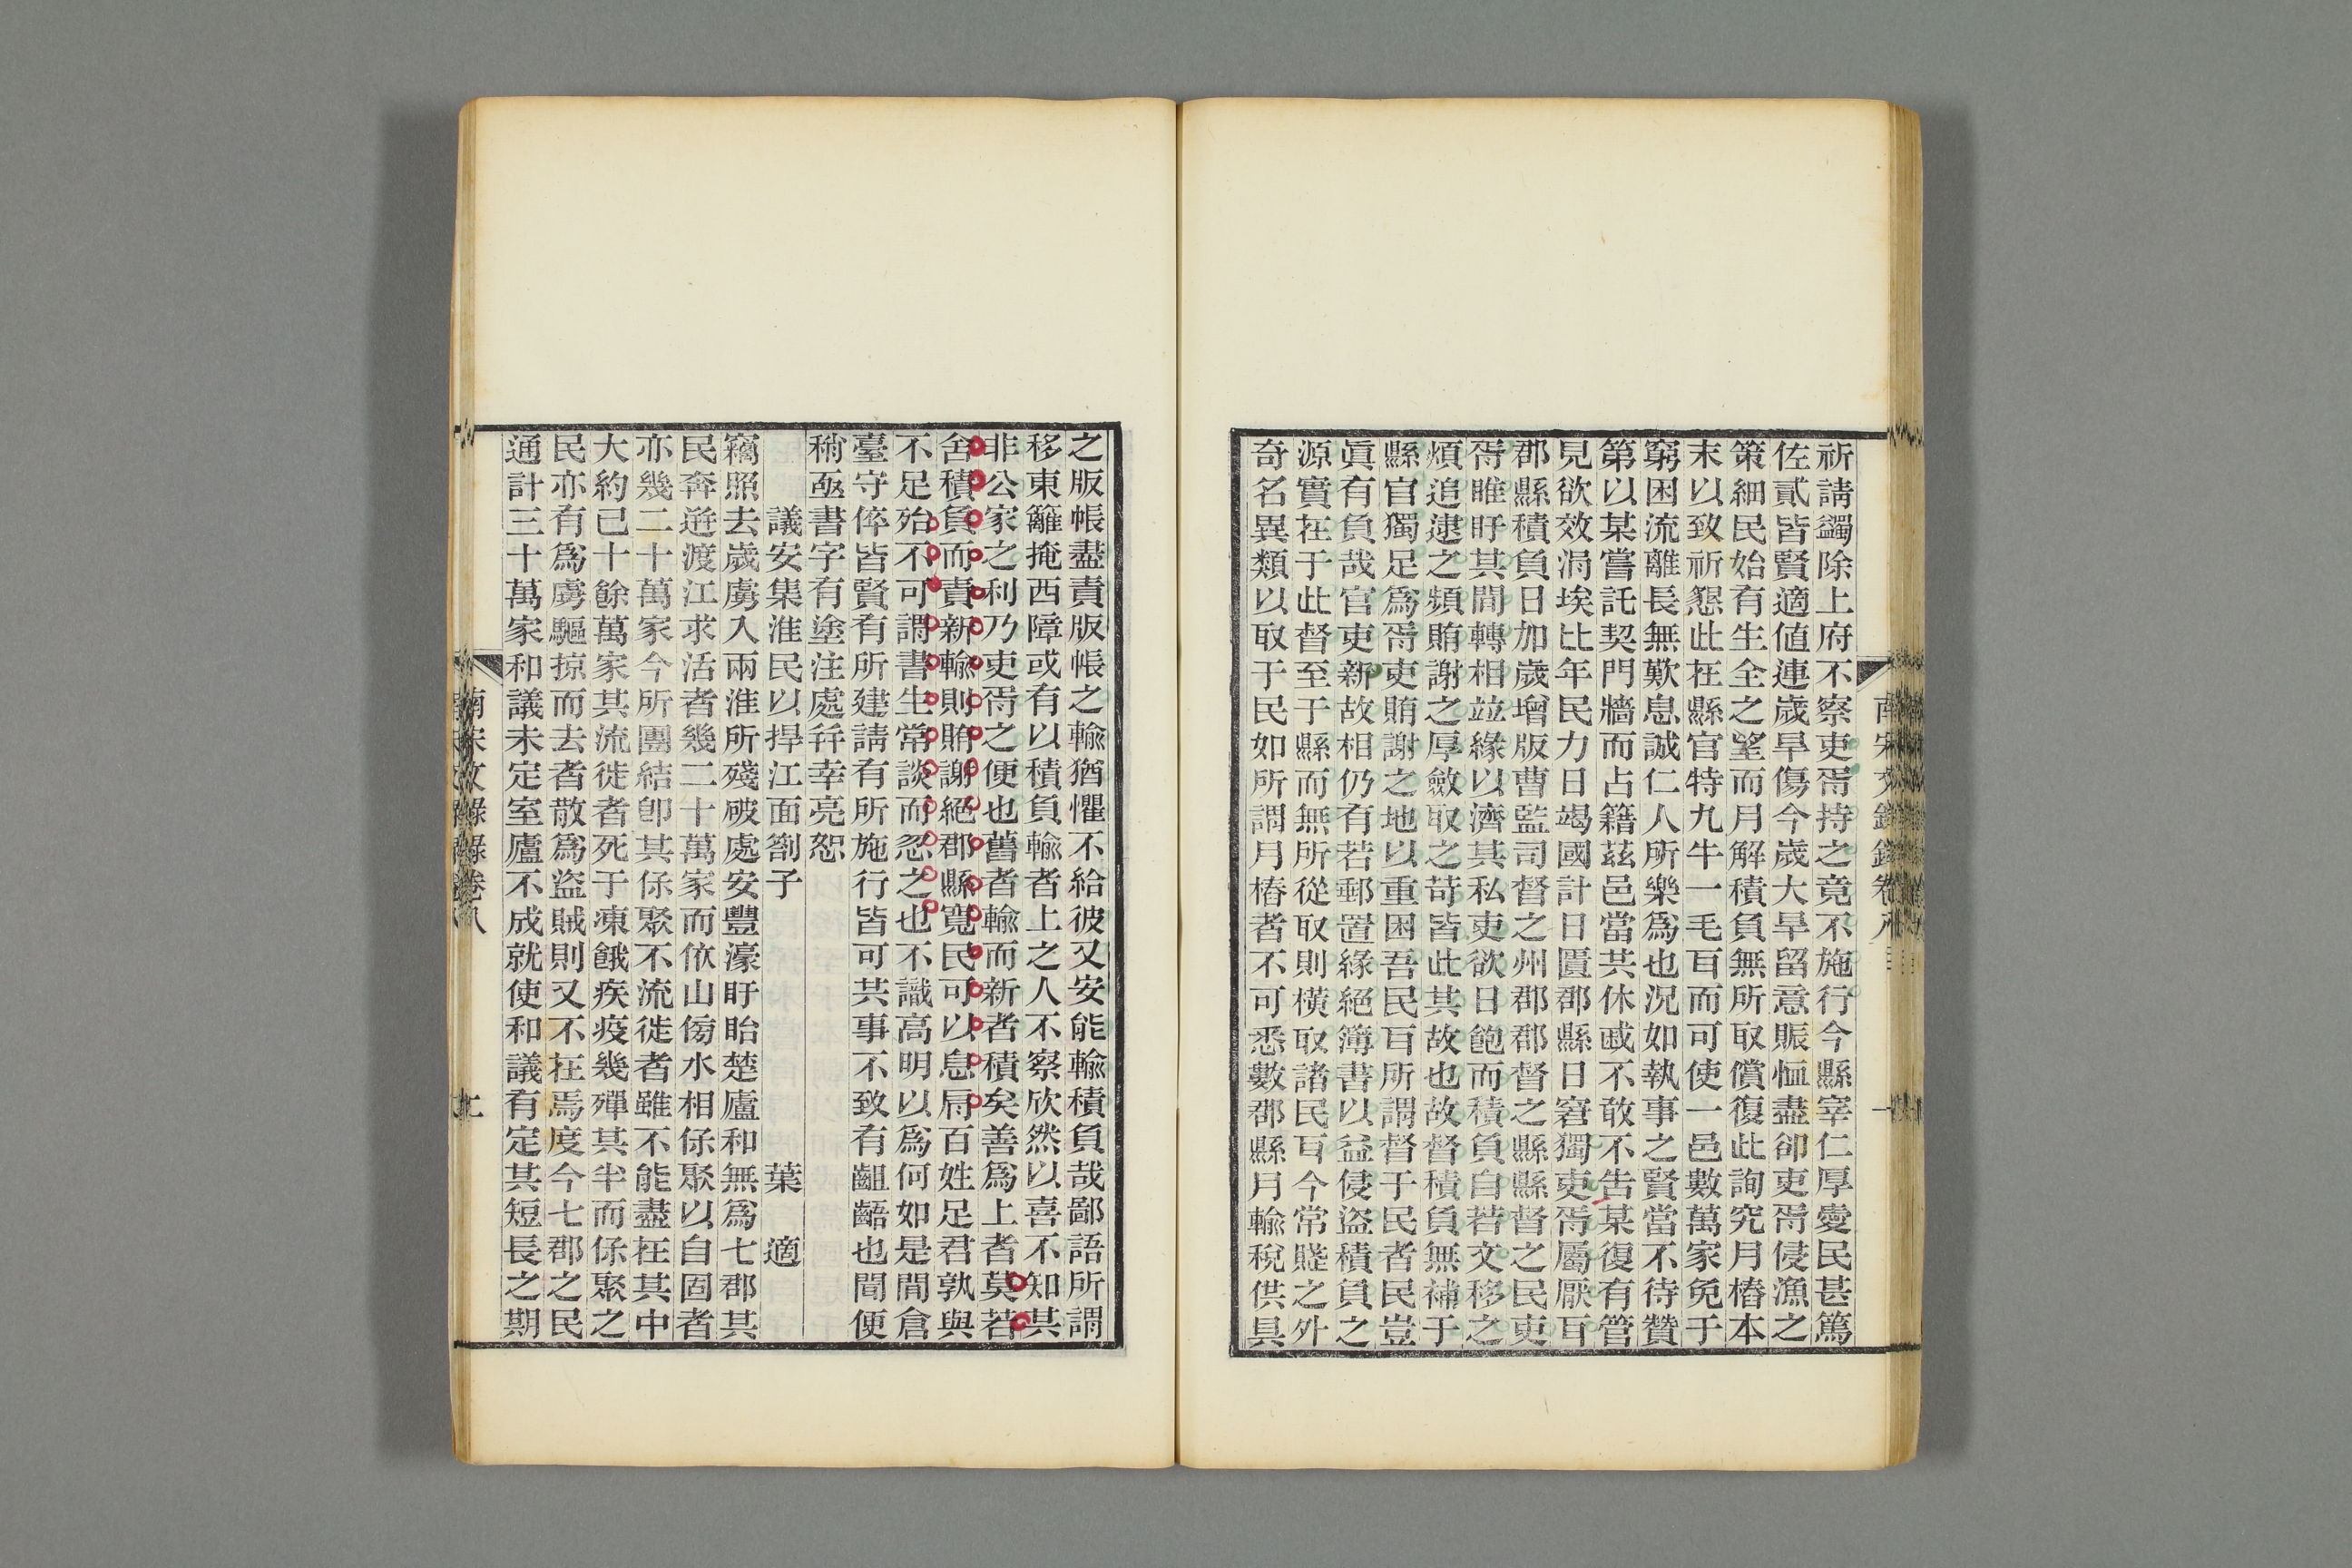 祈請蠲除上府不察吏胥持之竟不施行今縣宰仁厚愛民甚篤
佐貳皆賢適値連歲旱傷今歲大旱留意賑恤盡卻吏胥侵漁之
策細民始有生全之望而月解積負無所取償復此詢究月樁本
末以致祈懇此在縣官特九牛一毛耳而可使一邑數萬家免于
窮困流離長無歎息誠仁人所樂爲也況如執事之賢當不待贊
第以某嘗託契門牆而占籍茲邑當共休戚不敢不告某復有管
見欲效涓埃比年民力日竭國計日匱郡縣日窘獨吏胥屬厭耳
郡縣積負日加歲增版曹監司督之州郡郡督之縣縣督之民吏
胥睢盱其間轉相並緣以濟其私吏欲日飽而積負自若文移之
煩追逮之頻賄謝之厚斂取之苛皆此其故也故督積負無補于
縣官獨足爲胥吏賄謝之地以重困吾民耳所謂督于民者民豈
眞有負哉官吏新故相仍有若郵置緣絕簿書以益侵盜積負之
源實在于此督至于縣而無所從取則橫取諸民耳今常賦之外
奇名異類以取于民如所謂月樁者不可悉數郡縣月輸稅供具
之版帳盡責版帳之輸猶懼不給彼又安能輸積負哉鄙語所謂
移東籬掩西障或有以積負輸者上之人不察欣然以喜不知其
非公家之利乃吏胥之便也舊者輸而新者積矣善爲上者莫若
舍積負而責新輸則賄謝絕郡縣寬民可以息肩百姓足君孰與
不足殆不可謂書生常談而忽之也不識高明以爲何如是間倉
臺守倅皆賢有所建請有所施行皆可共事不致有齟齬也聞便
稍亟書字有塗注處幷幸亮恕
議安集淮民以捍江面劄子　葉適
竊照去歲虜入兩淮所殘破處安豐濠盱眙楚廬和無爲七郡其
民奔迸渡江求活者幾二十萬家而依山傍水相保聚以自固者
亦幾二十萬家今所團結卽其保聚不流徙者雖不能盡在其中
大約已十餘萬家其流徙者死于凍餓疾疫幾殫其半而保聚之
民亦有爲虜驅掠而去者散爲盜賊則又不在焉度今七郡之民
通計三十萬家和議未定室廬不成就使和議有定其短長之期
南宋文錄錄卷八